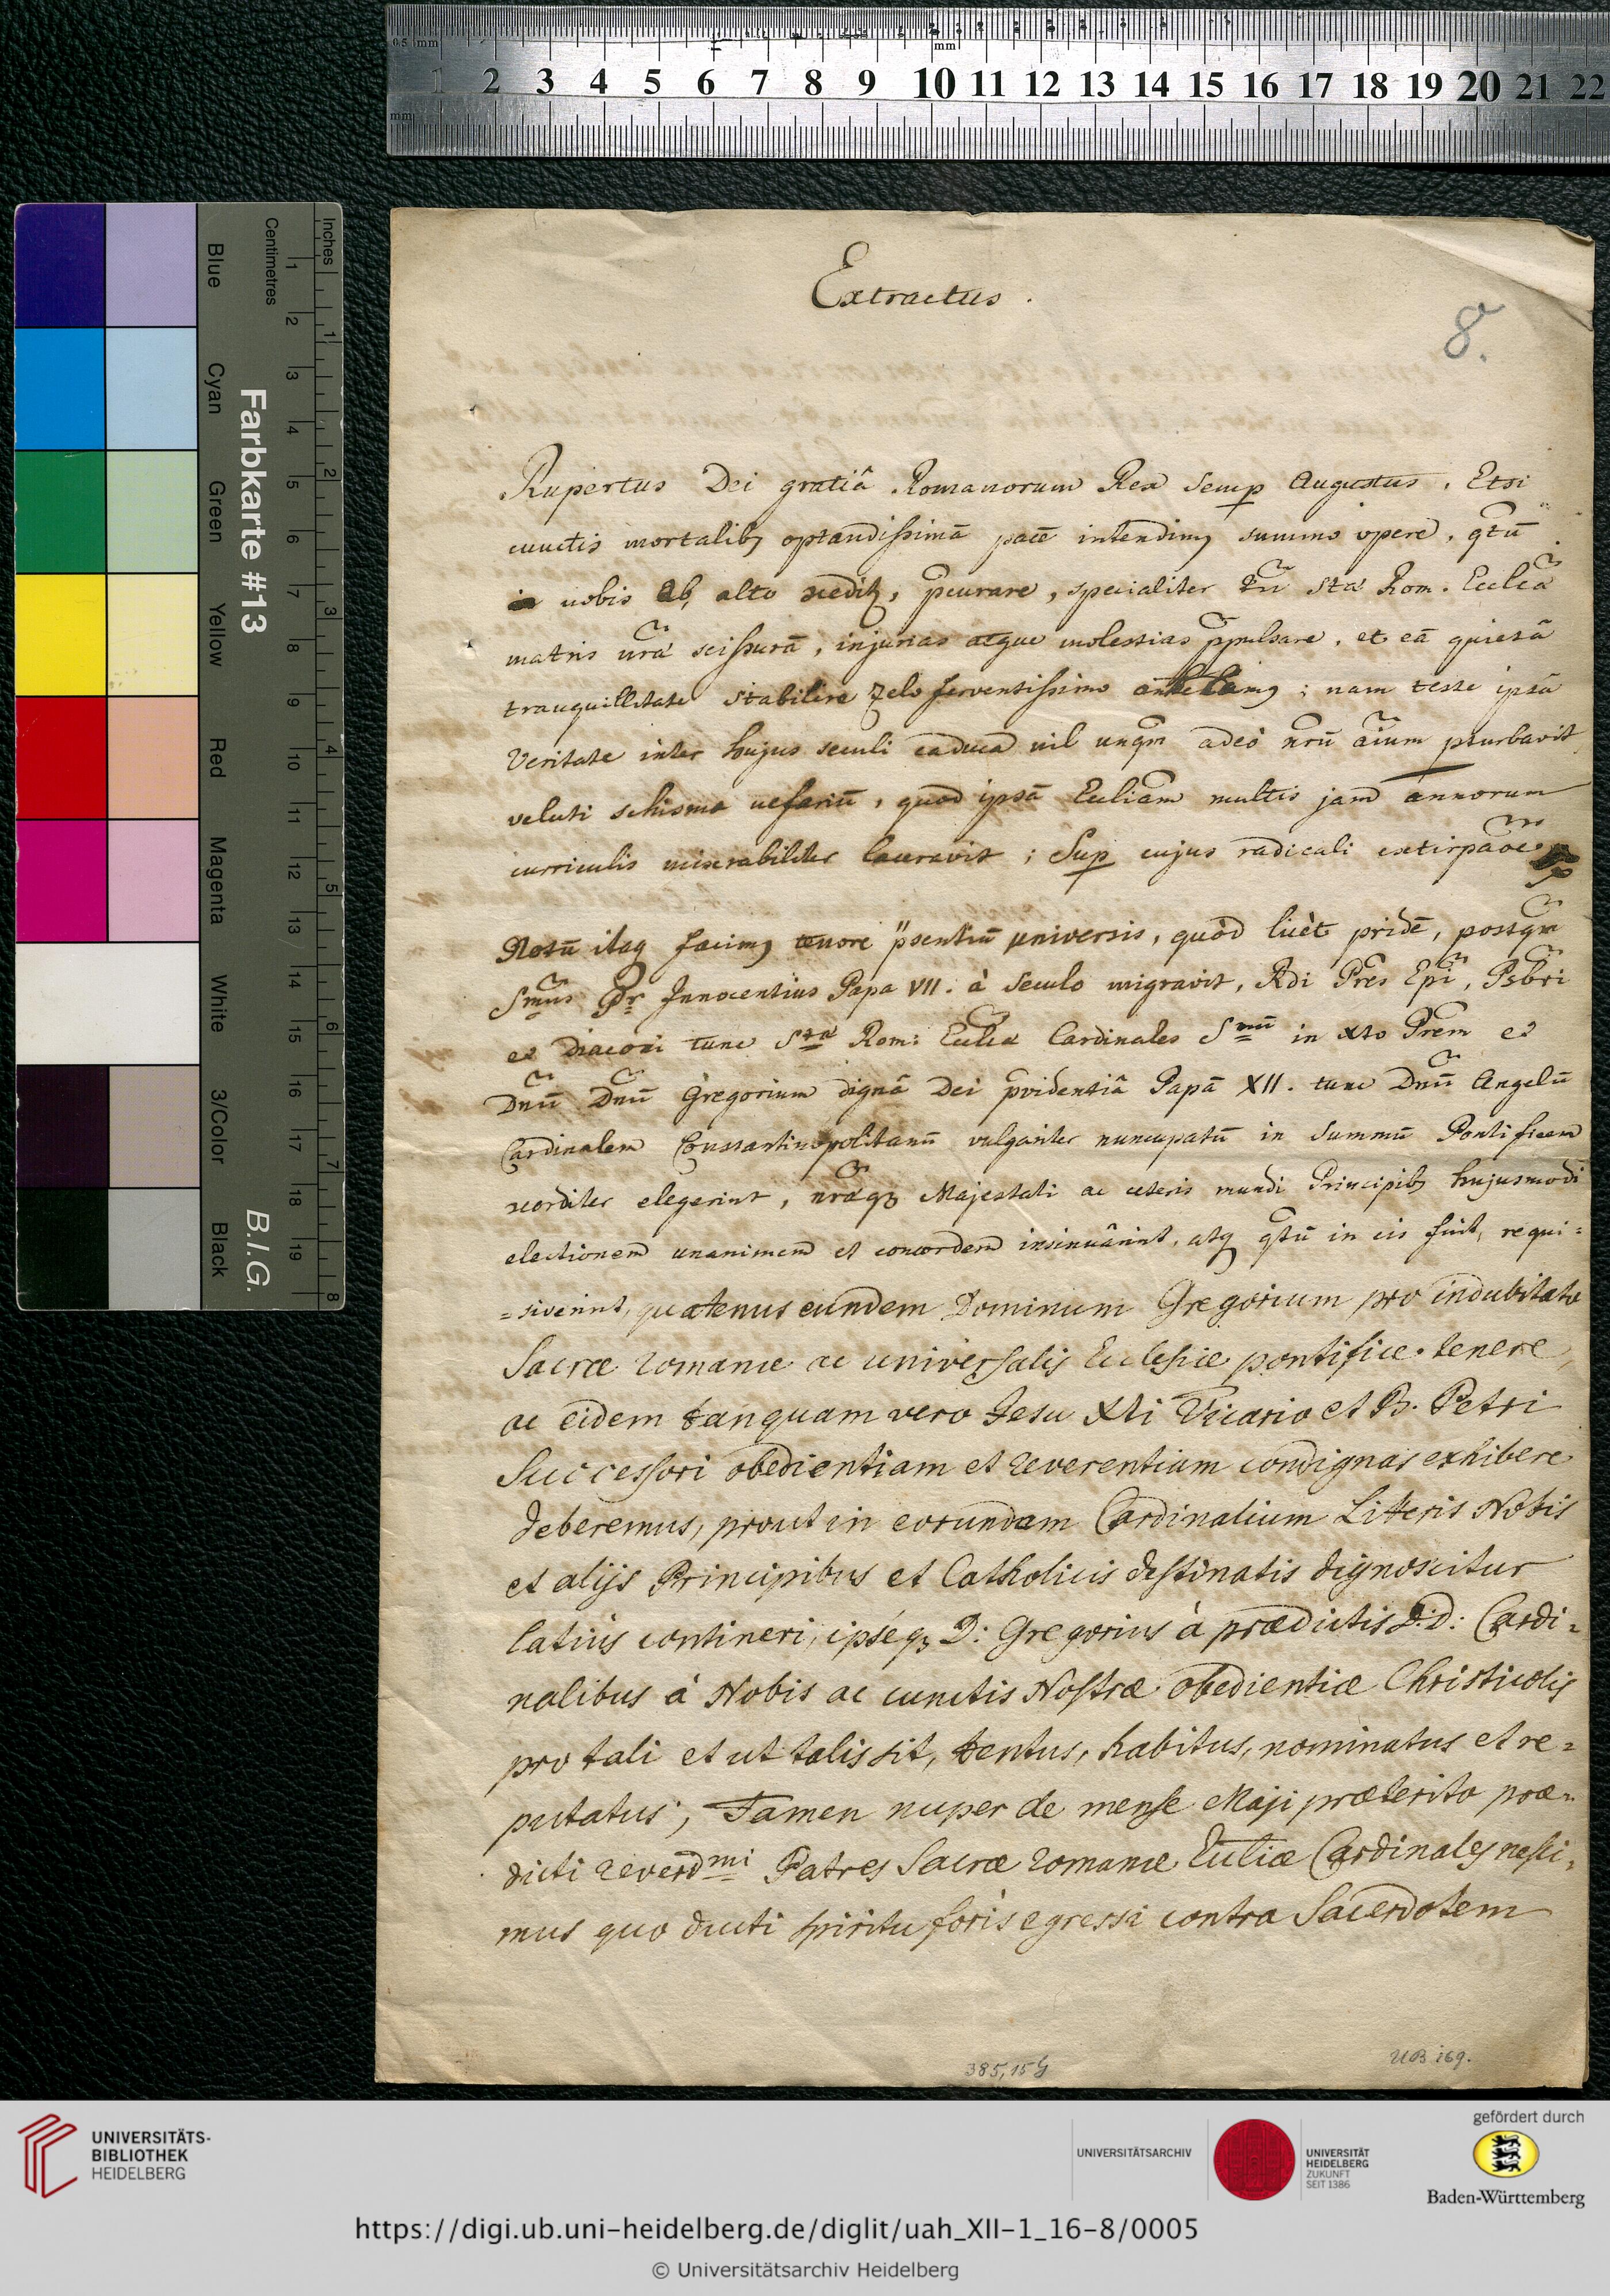 0.5 mm
mm
1 2 3 4 5 6 7 8 9 10 11 12 13 14 15 16 17 18 19 20 21 22
mm
Extractus.
8.
Rupertus Dei gratiâ Romanorum Rex semp Augustus. Etsi
cunctis mortalibꝫ optandissimā pacē intendimꝫ summo opere, qtū
nobis ab alto, pcurare, specialiter Sta Rom. Ecclia
matris nrā scissurā, injurias atque molestias ppulsare, et eā quietā
tranquillitate stabilire zelo ferventissimo anhelamꝫ; nam teste ipsâ
Veritate inter hujus seculi caduca nil unqm adeò nrū aīum pturbavit
veluti schisma nefariū, quod ipsā Eccliam multis jam annorum
curriculis miserabiliter laceravit; Sup cujus radicali extirpaõe
Notū itaqꝫ facimꝫ tenore psentiū universis, quòd licèt pridē, postqm
Smus Innocentius Papa VII. à seculo migravit, Rdi Pres Epi, Psbri
et Diaconi tunc Sta Rom: Ecclia Cardinales Smū in xto Prem et
Dnū Dnū Gregorium dignâ Dei pvidentiâ Papā XII. tunc Dnū Angelū
Cardinalem Constantinopolitanū vulgariter nuncupatū in summū Pontificem
concorditer elegerint, nræqꝫ Majestati ac ceteris mundi Principibꝫ hujusmodi
electionem unanimem et concordem insinuârint, atqꝫ qtū in eis fuit, requi=
=siverint, quatenus eundem Dominum Gregorium pro indubitato
Sacræ romanæ ac universalis Ecclesiæ pontifice tenere,
ac eidem tanquam vero Jesu Xti Vicario et B. Petri
Successori obedientiam et reverentiam condignas exhibere
deberemus, prout in eorundem Cardinalium Litteris Nobis
et alijs Principibus et Catholicis destinatis dignoscitur
latiùs contineri, ipséqꝫ D: Gregorius à prædictis D.D: Cardi=
nalibus à Nobis ac cunctis Nostræ obedientiæ Christicolis
pro tali et ut talis sit, tentus, habitus, nominatus et re=
putatus, Tamen nuper de mense Maji præterito præ=
dicti reverdmi Patres Sacræ romanæ Eccliæ Cardinales nesci=
mus quo ducti spiritu forìs egressi contra Sacerdotem
385,15 G
UB 169.
Inches
Centimetres
Farbkarte #13
B.I.G.
Blue
Cyan
Green
Yellow
Red
Magenta
White
3/Color
Black
1 2 3 4 5 6 7 8 9 10 11 12 13 14 15 16 17 18 19
1 2 3 4 5 6 7 8
UNIVERSITÄTS-
BIBLIOTHEK
HEIDELBERG
UNIVERSITÄTSARCHIV
UNIVERSITÄT
HEIDELBERG
ZUKUNFT
SEIT 1386
gefördert durch
Baden-Württemberg
https://digi.ub.uni-heidelberg.de/diglit/uah_XII-1_16-8/0005
© Universitätsarchiv Heidelberg